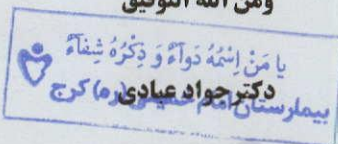 ومن الله التوفيق
يا مَنْ اِسْمُهُ دَوآءٌ وَ ذِكْرُهُ شِفآءٌ
دکتر جواد عبادی
بیمارستان امام خمینی (ره) کرج